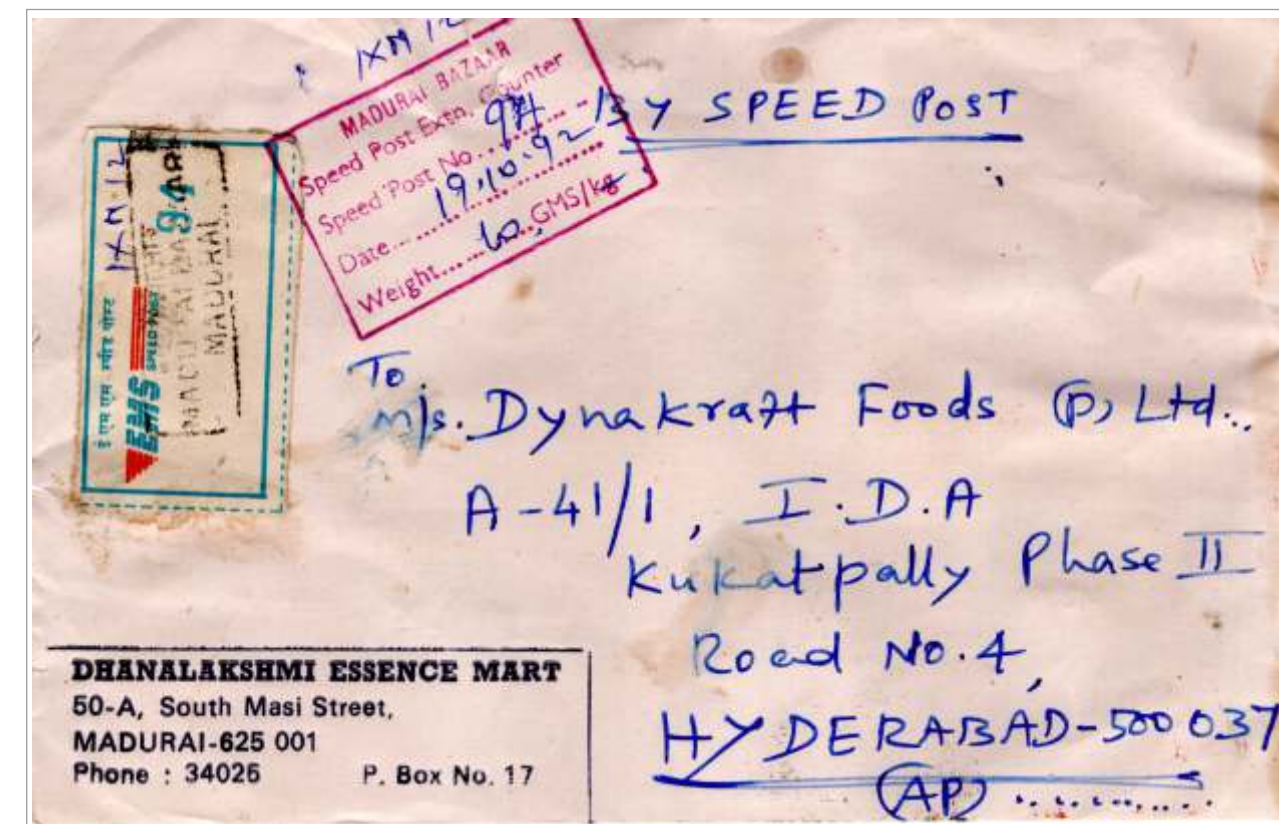 IXM 12
MADURAI BAZAAR
Speed Post Extn. Counter
Speed Post No... 94
Date... 19.10.92
Weight... GMS/kg
BY SPEED POST
IXM 12
94
MADURAI
ई एम एस स्पीड पोस्ट
EMS SPEED POST
To.
M/s. Dynakraft Foods (P) Ltd..
A-41/1, I.D.A
Kukatpally Phase II
Road No. 4,
HYDERABAD-500 037
(AP) ..........
DHANALAKSHMI ESSENCE MART
50-A, South Masi Street,
MADURAI-625 001
Phone : 34026 P. Box No. 17